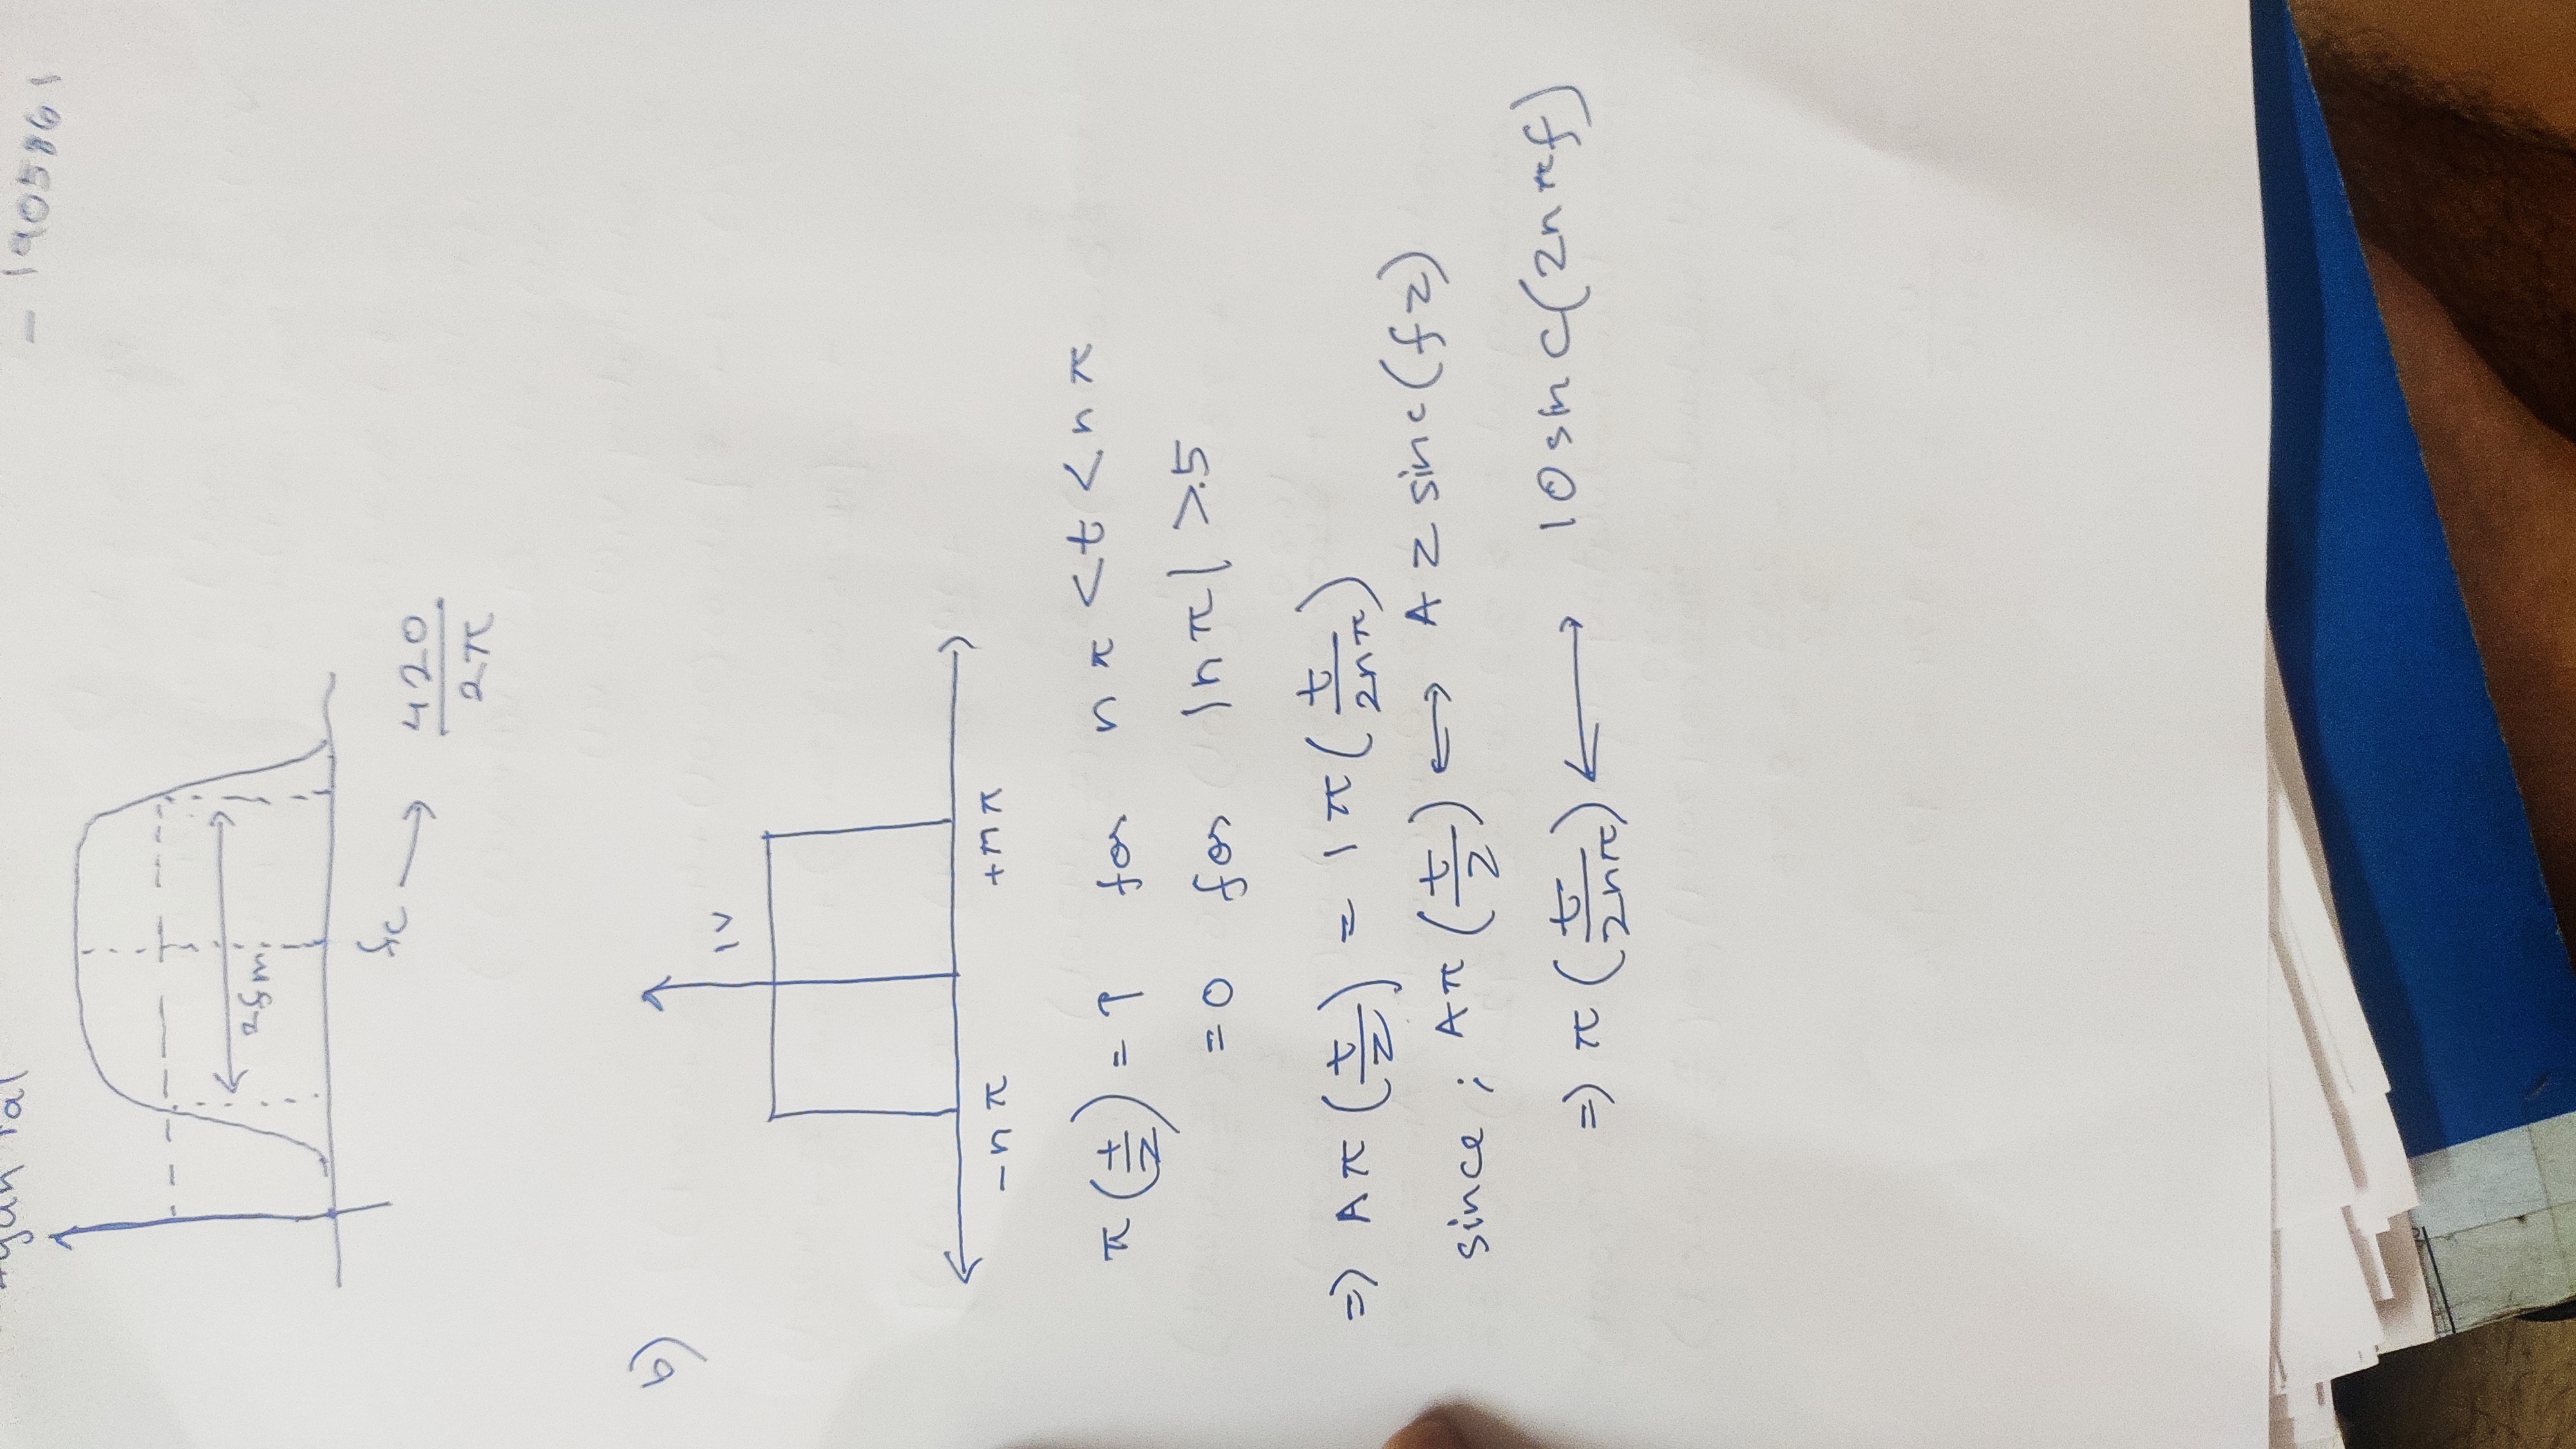 - 1905861
2fm
fc → 420/2π
b)
1V
-nπ +nπ
π(t/z) = 1 for nπ < t < nπ
= 0 for |nπ| > .5
=> Aπ(t/z) = 1π(t/2nπ)
since ; Aπ(t/z) ↔ A z sinc(fz)
=> π(t/2nπ) ↔ 10 sinc(2nπf)